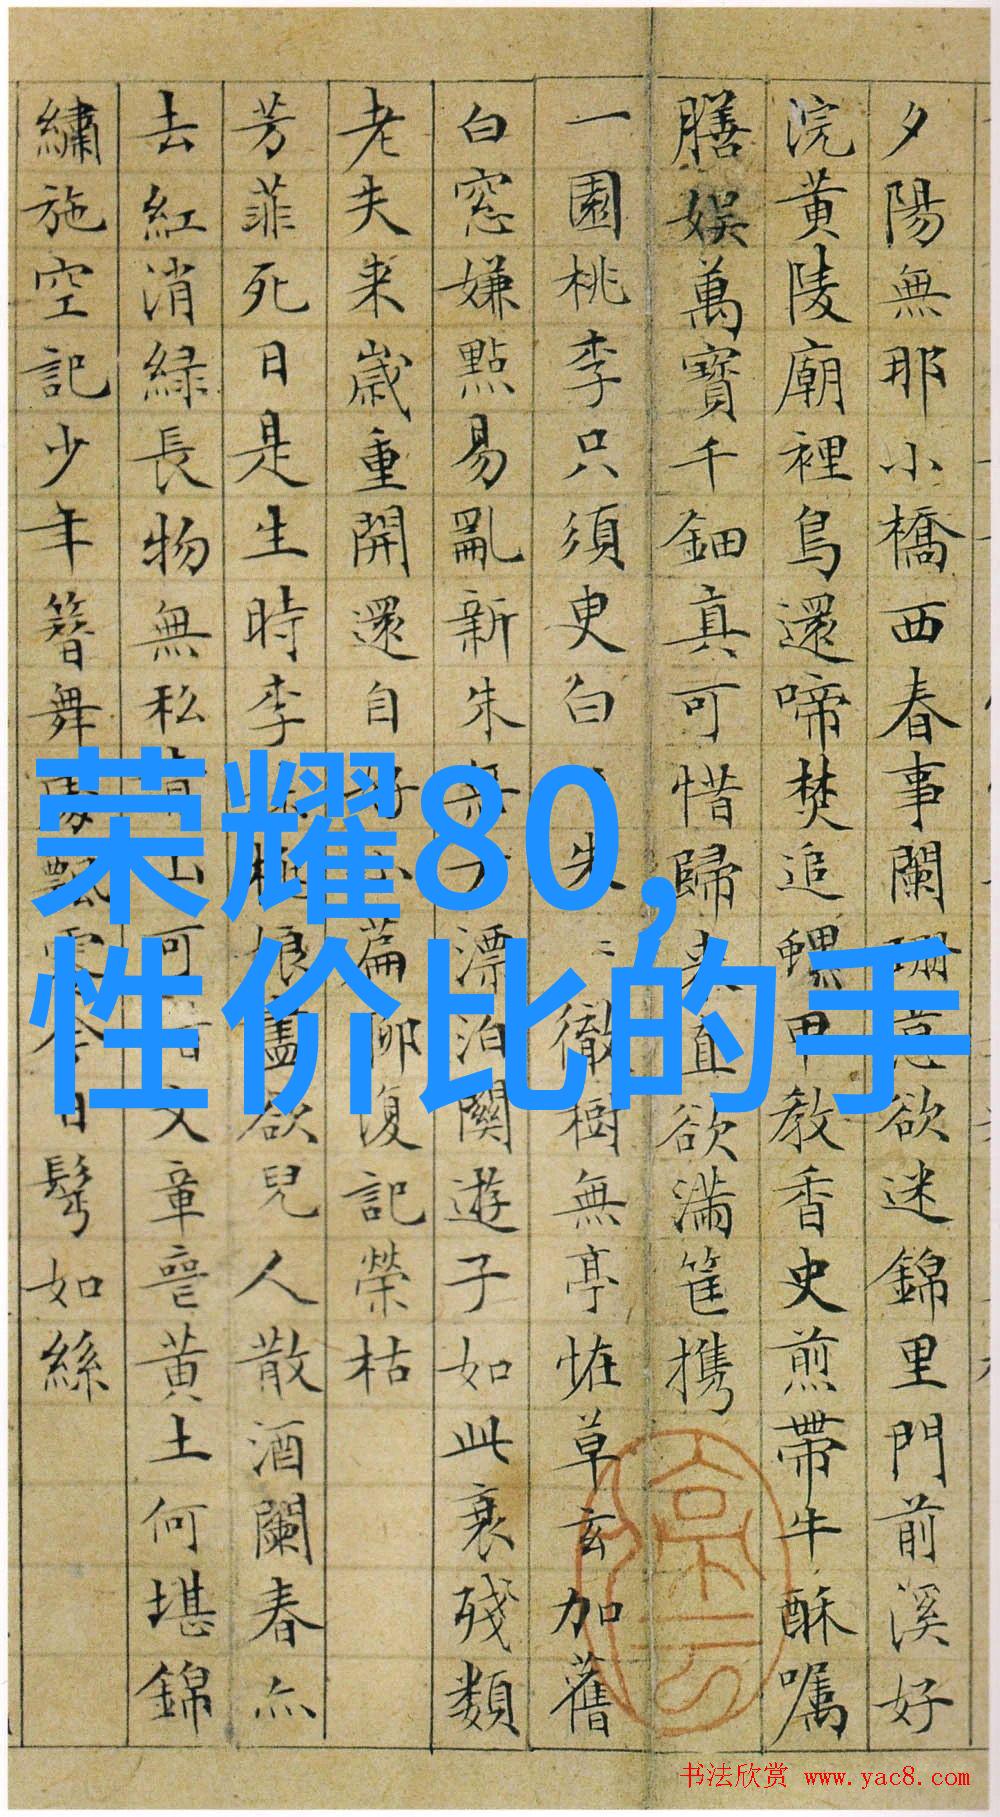 荣耀80,
性价比的手
夕陽無那小橋西春事闌珊意欲迷錦里門前溪好
浣黄陵廟裡鳥還啼焚追螺甲教香史煎帶牛酥囑
膳娱萬寶千鈿真可惜歸来直欲滿筐携
一園桃李只須吏白〻朱〻徹樹無亭恠草玄加舊
白窓嫌點易亂新朱無方漂泊關遊子如此衰殘類
老夫来嵗重開還自好小篇聊復記榮枯
芳菲死日是生時李桃娘盡欲兒人散酒闌春亦
去紅消緑長物無私青山可惜文章喪黄土何堪錦
繡施空記少年簪舞處飄零今日鬢如絲
书法欣赏 www.yac8.com